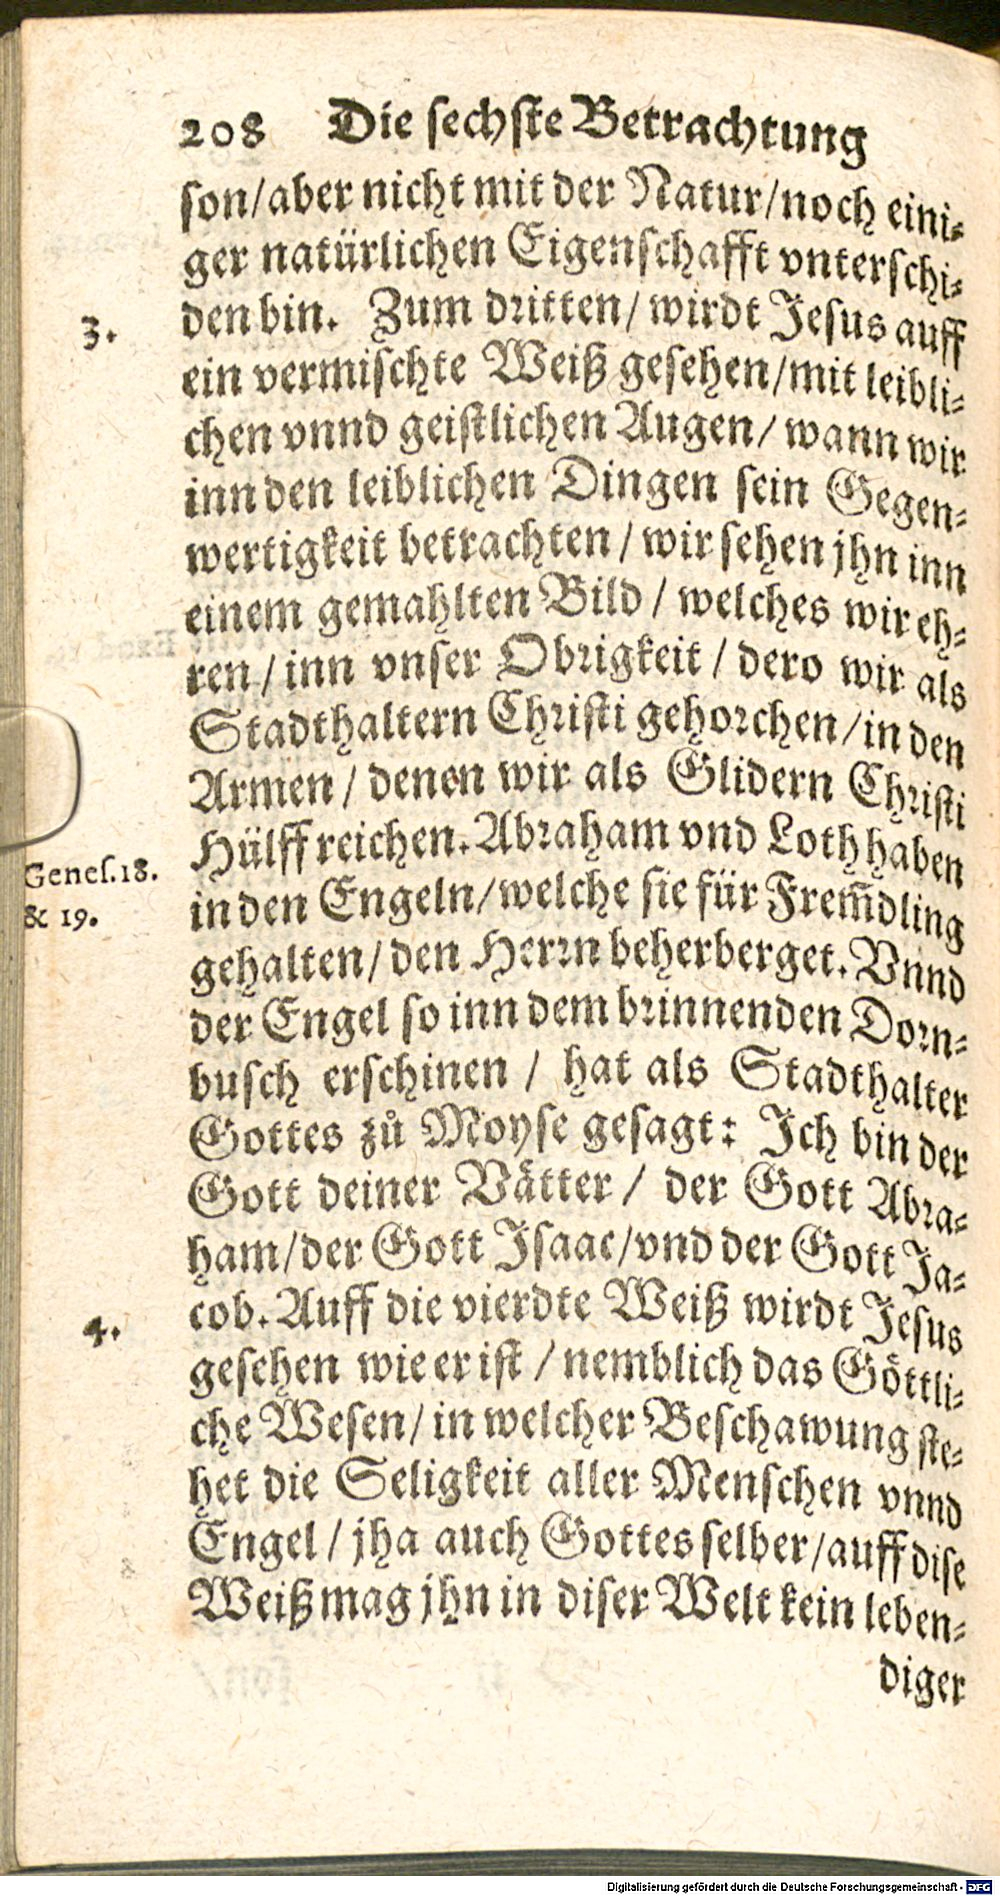 208 Die sechste Betrachtung
son/aber nicht mit der Natur/noch eini-
ger natürlichen Eigenschafft vnterschi-
3. den bin. Zum dritten/ wirdt Jesus auff
ein vermischte Weiß gesehen/mit leibli-
chen vnnd geistlichen Augen/ wann wir
inn den leiblichen Dingen sein Gegen-
wertigkeit betrachten / wir sehen jhn inn
einem gemahlten Bild / welches wir eh-
ren / inn vnser Obrigkeit / dero wir als
Stadthaltern Christi gehorchen /in den
Armen / denen wir als Glidern Christi
Hülff reichen. Abraham vnd Loth haben
Genes. 18. & 19.
in den Engeln/welche sie für Frem̃dling
gehalten/ den Herrn beherberget. Vnnd
der Engel so inn dem brinnenden Dorn-
busch erschinen / hat als Stadthalter
Gottes zů Moyse gesagt: Ich bin der
Gott deiner Vätter / der Gott Abra-
ham/der Gott Isaac/vnd der Gott Ja-
4. cob. Auff die vierdte Weiß wirdt Jesus
gesehen wie er ist / nemblich das Göttli-
che Wesen/ in welcher Beschawung ste-
het die Seligkeit aller Menschen vnnd
Engel / jha auch Gottes selber/auff dise
Weiß mag jhn in diser Welt kein leben-
diger
Digitalisierung gefördert durch die Deutsche Forschungsgemeinschaft - DFG